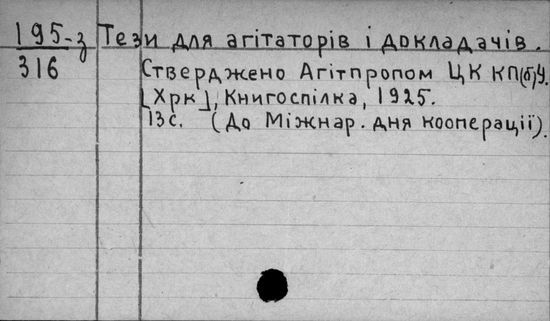 195-з Тези для агітаторів і докладачів.
316 Стверджено Агітпропом ЦК КП(б)У.
[Хрк], Книгоспілка, 1925.
13с. (До Міжнар. дня кооперації).